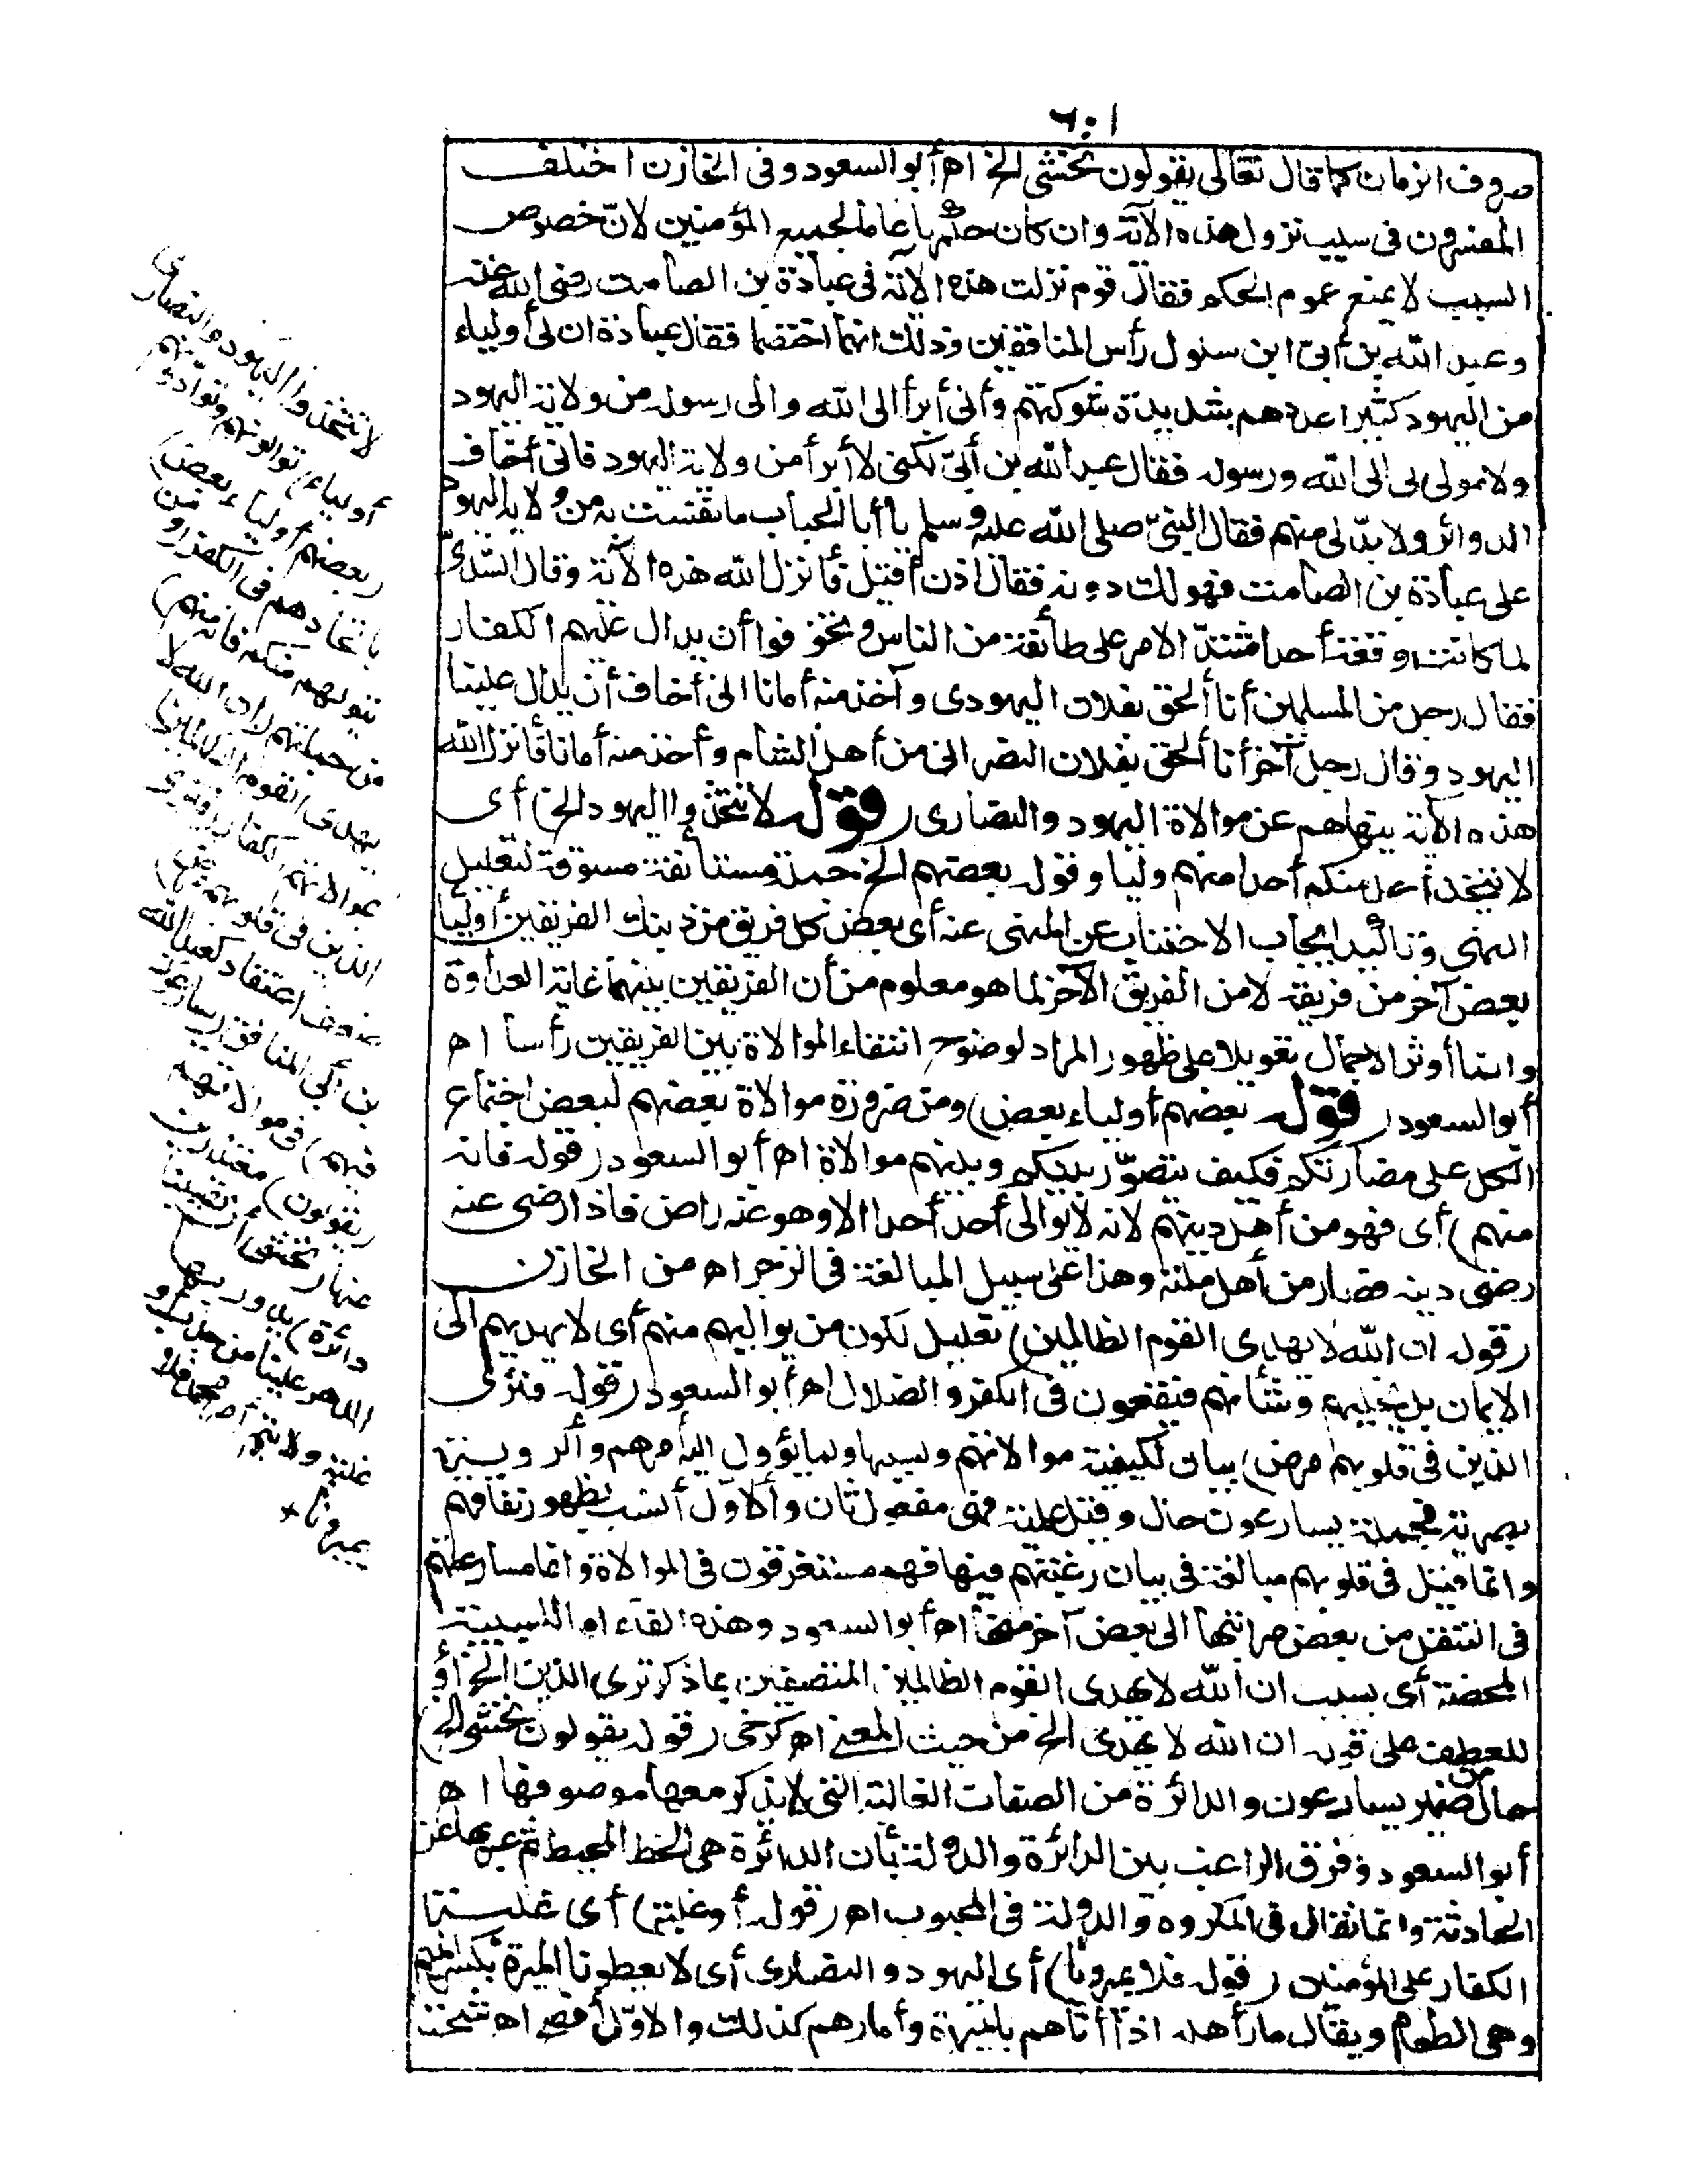 ٦٠١
صروف الزمان كما قال تعالى يقولون نخشى الخ اه أبو السعود وفى الخازن اختلف
المفسرون فى سبب نزول هذه الآية وان كان حكمها عاما لجميع المؤمنين لانّ خصوص
السبب لا يمنع عموم الحكم فقال قوم نزلت هذه الآية فى عبادة بن الصامت رضى الله عنه
وعبد الله بن أبىّ ابن سلول رأس المنافقين وذلك انهما اختصما فقال عبادة ان لى أولياء
من اليهود كثيرا عددهم شديدة شوكتهم وأنى أبرأ الى الله والى رسوله من ولاية اليهود
ولا مولى لى الى الله ورسوله فقال عبد الله بن أبىّ لكنى لا أبرأ من ولاية اليهود فانى أخاف
الدوائر ولا بدّ لى منهم فقال النبىّ صلى الله عليه وسلم يا أبا الحباب ما نفست به من ولاية اليهود
على عبادة بن الصامت فهو لك دونه فقال اذن أقبل فأنزل الله هذه الآية وقال السّدىّ
لما كانت وقعة أحد اشتدّ الامر على طائفة من الناس وتخوّفوا أن يدال عليهم الكفار
فقال رجل من المسلمين أنا ألحق بفلان اليهودى وآخذ منه أمانا انى أخاف أن يدال علينا
اليهود وقال رجل آخر أنا ألحق بفلان النصرانى من أهل الشام وآخذ منه أمانا فأنزل الله
هذه الآية ينهاهم عن موالاة اليهود والنصارى (قوله لا تتخذوا اليهود الخ) أى
لا يتخذ أحد منكم أحدا منهم وليا وقوله بعضهم الخ جملة مستأنفة مسوقة لتعليل
النهى وتأكيد ايجاب الاجتناب عن المنهى عنه أى بعض كل فريق من ذينك الفريقين أوليا
بعض آخر من فريقه لا من الفريق الآخر لما هو معلوم من أن الفريقين بينهما غاية العداوة
وانما أوثر الاجمال تعويلا على ظهور المراد لوضوح انتفاء الموالاة بين الفريقين رأسا اه
أبو السعود (قوله بعضهم أولياء بعض) ومن ضرورة موالاة بعضهم لبعض اجتماع
الكل على مضارتكم فكيف يتصوّر بينكم وبينهم موالاة اه أبو السعود (قوله فانه
منهم) أى فهو من أهل دينهم لانه لا يوالى أحد أحدا الا وهو عنه راض فاذا رضى عنه
رضى دينه فصار من أهل ملته وهذا على سبيل المبالغة فى الزجر اه من الخازن
(قوله ان الله لا يهدى القوم الظالمين) تعليل لكون من يواليهم منهم أى لا يهديهم الى
الايمان بل يخليهم وشأنهم فيقعون فى الكفر والضلال اه أبو السعود (قوله فترى
الذين فى قلوبهم مرض) بيان لكيفية موالاتهم ولسببها ولما يؤول اليه أمرهم والرؤية
بصرية فجملة يسارعون حال وقيل علمية فهى مفعول ثان والاوّل أنسب بظهور نفاقهم
وانما قيل فى قلوبهم مبالغة فى بيان رغبتهم فيها فهم مستغرقون فى الموالاة وانما مسارعتهم
فى التنقل من بعض مراتبها الى بعض آخر منها اه أبو السعود وهذه الفاء اما للسببية
المحضة أى بسبب ان الله لا يهدى القوم الظالمين المتصفين بما ذكر ترى الذين الخ أو
للعطف على قوله ان الله لا يهدى الخ من حيث المعنى اه كرخى (قوله يقولون نخشى الخ)
حال من ضمير يسارعون والدائرة من الصفات الغالبة التى لا يذكر معها موصوفها اه
أبو السعود وفرق الراغب بين الدائرة والدولة بأن الدائرة هى الخط المحيط ثم عبر بها عن
الحادثة وانما تقال فى المكروه والدولة فى المحبوب اه (قوله أو غلبة) أى غلبة
الكفار على المؤمنين (قوله فلا يميرونا) أى اليهود والنصارى أى لا يعطونا الميرة بكسر الميم
وهى الطعام ويقال مار أهله اذا أتاهم بالميرة وأمارهم كذلك والاوّل أفصح اه شيخنا
لا تتخذوا اليهود والنصارى
أولياء) توالونهم وتوادونهم
(بعضهم أولياء بعض)
باتحادهم فى الكفر (ومن
يتولهم منكم فانه منهم)
من جملتهم (ان الله لا
يهدى القوم الظالمين)
بموالاتهم الكفار (فترى
الذين فى قلوبهم مرض)
ضعف اعتقاد كعبد الله
بن أبى المنافق (يسارعون
فيهم) فى موالاتهم
(يقولون) معتذرين
عنها (نخشى أن تصيبنا
دائرة) يدور بها
الدهر علينا من جدب أو
غلبة ولا يتم أمر محمد فلا
يميرونا